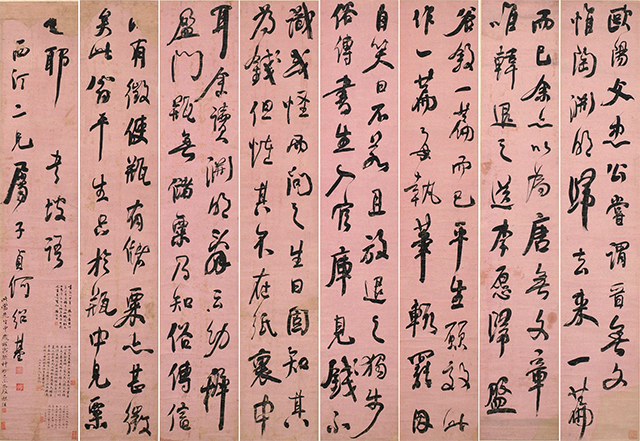 歐陽文忠公嘗謂晉無文
惟陶淵明歸去來一篇
而已余亦以為唐無文章
唯韓退之送李愿歸盤
谷敘一篇而已平生願效此
作一篇每執筆輒罷因
自笑曰不若且放退之獨步
俗傳書生入官庫見錢不
識或怪而問之生曰固知其
為錢但怪其不在紙裹中
耳余讀淵明辭云幼稚
盈門瓶無儲粟乃知俗傳信
而有徵使瓶有儲粟亦甚微
矣此翁平生只於瓶中見粟
也耶 書坡語
西汀二兄屬 子貞何紹基